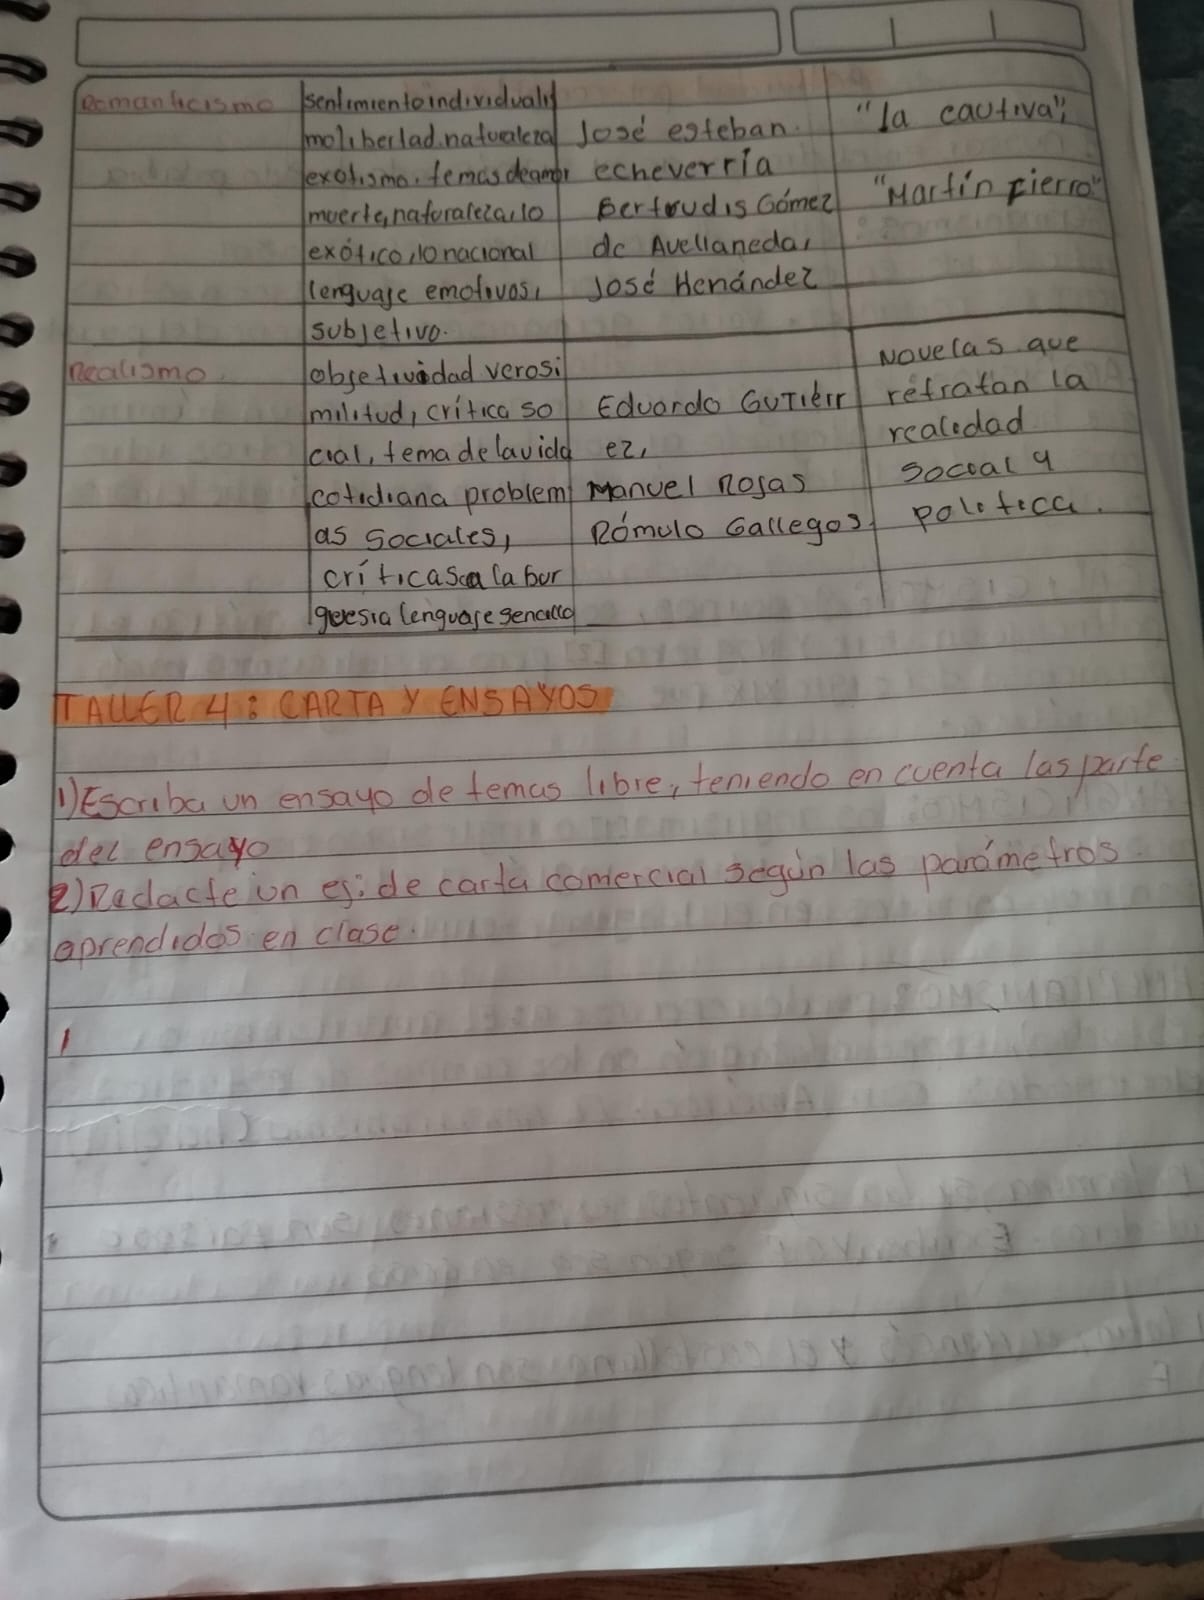 Romanticismo
sentimiento individualis
mo libertad. naturaleza
exotismo. temas de amor
muerte, naturaleza, lo
exótico, lo nacional
lenguaje emotivos,
subjetivo.
José esteban.
echeverría
Bertrudis Gómez
de Avellaneda,
José Henández
"la cautiva",
"Martín Fierro"
Realismo.
objetividad verosi
militud, crítica so
cial, tema de la vida
cotidiana problem
as sociales,
críticas a la bur
guesia lenguaje sencillo
Eduardo Gutiérr
ez,
Manuel Rojas
Rómulo Gallegos.
Novelas que
retratan la
realidad
social y
politica.
TALLER 4: CARTA Y ENSAYOS
1) Escriba un ensayo de temas libre, teniendo en cuenta las parte
del ensayo
2) Redacte un ej: de carta comercial según las parámetros.
aprendidos en clase.
1